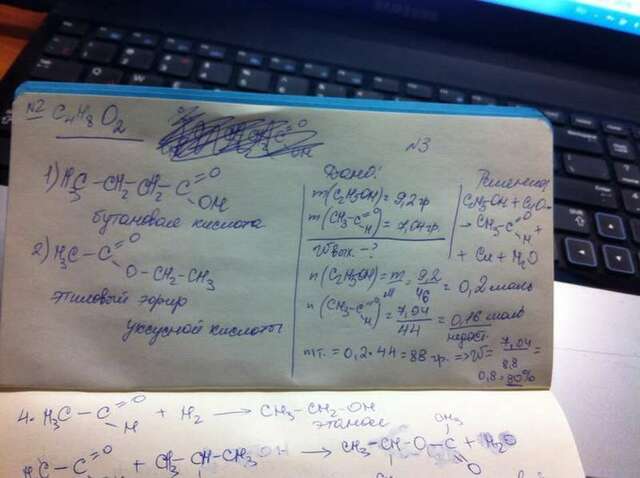 №2 C4H8O2
1) H3C-CH2-CH2-C=O
OH
бутановая кислота
2) H3C-C=O
O-CH2-CH3
этиловый эфир
уксусной кислоты
№3
Дано:
m(C2H5OH)=9,2гр
m(CH3-C=O
H)=7,04гр.
Wвых. -?
Решение:
+ CuO
→ CH3-C=O
H +
+ Cu + H2O
n(C2H5OH)=m/M=9,2/46=0,2моль
n(CH3-C=O
H)=7,04/44=0,16моль
недост.
mт.=0,2·44=88гр. =>W=7,04/8,8=
0,8=80%
4. H3C-C=O
H + H2 → CH3-CH2-OH
этанол
CH3
H3C-C=O + CH3-CH-CH3 OH → CH3-CH-O-C=O + H2O